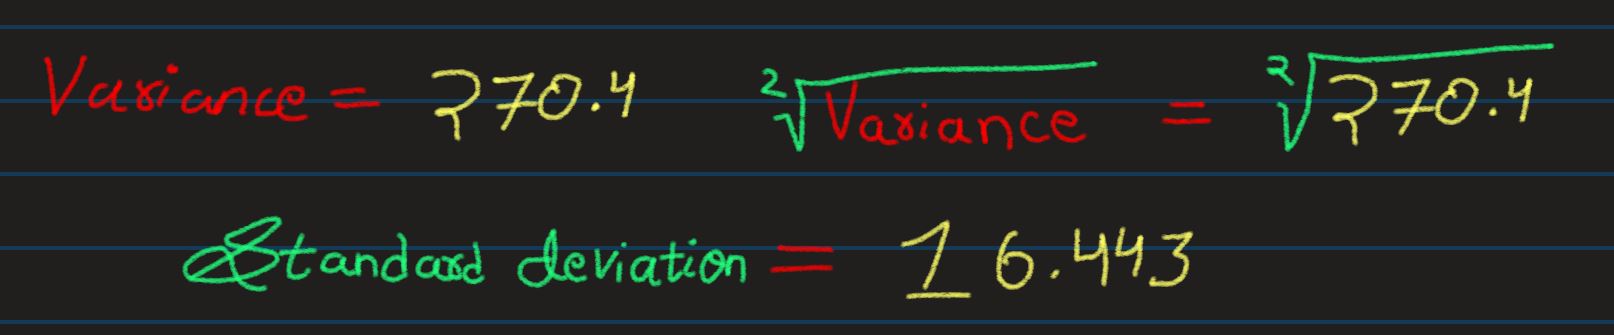 Variance = 270.4 ²√Variance = ²√270.4
Standard deviation = 16.443